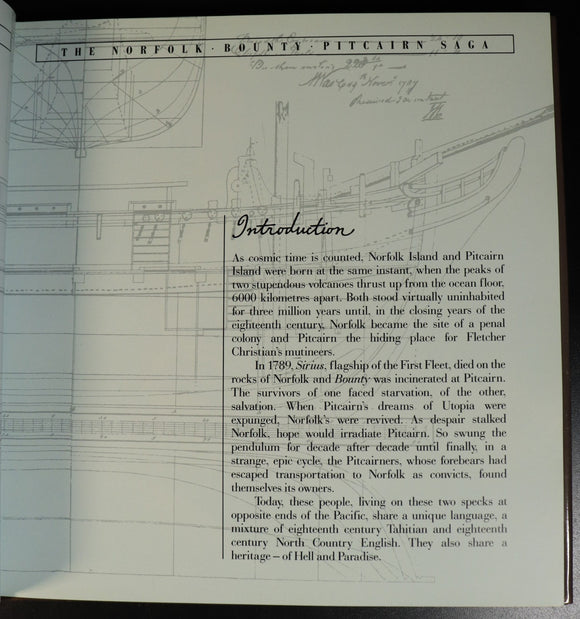 THE NORFOLK · BOUNTY · PITCAIRN SAGA
Introduction
As cosmic time is counted, Norfolk Island and Pitcairn
Island were born at the same instant, when the peaks of
two stupendous volcanoes thrust up from the ocean floor,
6000 kilometres apart. Both stood virtually uninhabited
for three million years until, in the closing years of the
eighteenth century, Norfolk became the site of a penal
colony and Pitcairn the hiding place for Fletcher
Christian's mutineers.
In 1789, Sirius, flagship of the First Fleet, died on the
rocks of Norfolk and Bounty was incinerated at Pitcairn.
The survivors of one faced starvation, of the other,
salvation. When Pitcairn's dreams of Utopia were
expunged, Norfolk's were revived. As despair stalked
Norfolk, hope would irradiate Pitcairn. So swung the
pendulum for decade after decade until finally, in a
strange, epic cycle, the Pitcairners, whose forebears had
escaped transportation to Norfolk as convicts, found
themselves its owners.
Today, these people, living on these two specks at
opposite ends of the Pacific, share a unique language, a
mixture of eighteenth century Tahitian and eighteenth
century North Country English. They also share a
heritage – of Hell and Paradise.